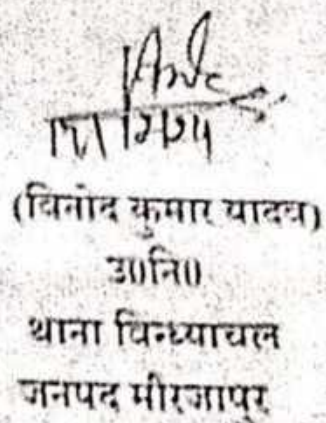 (विनोद कुमार यादव)
उ0नि0
थाना विन्ध्याचल
जनपद मीरजापुर